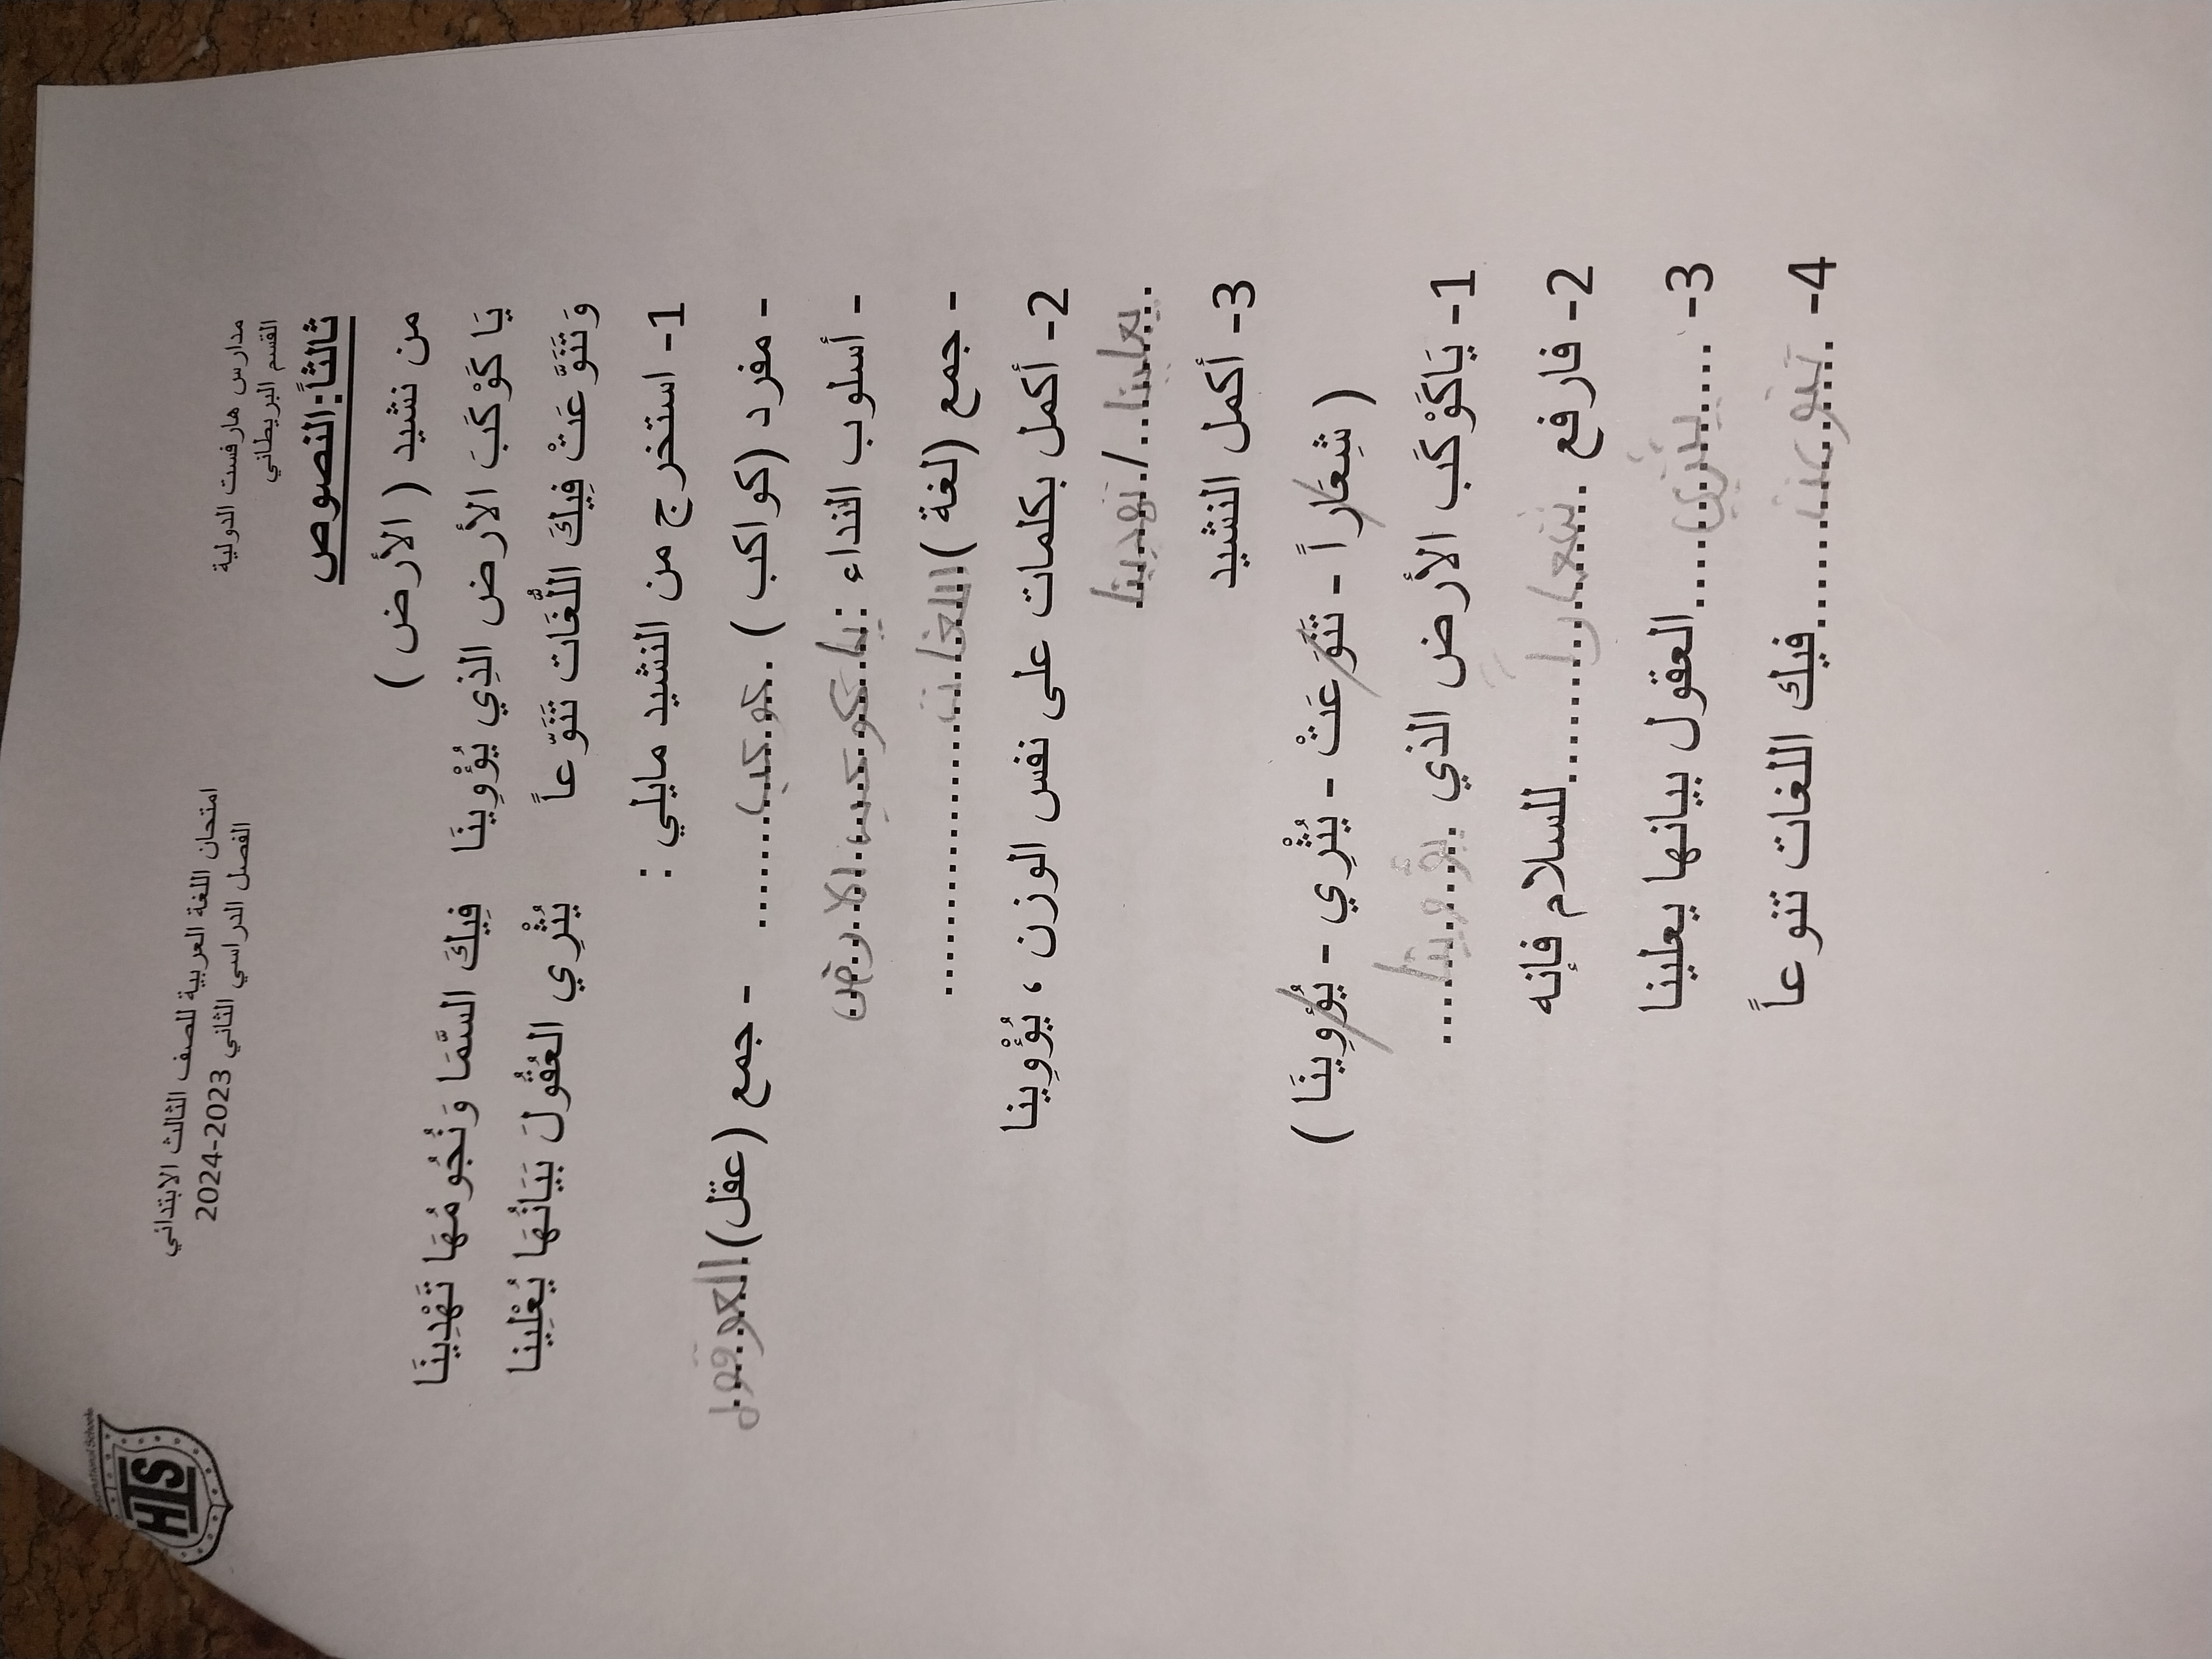 امتحان اللغة العربية للصف الثالث الابتدائي
الفصل الدراسي الثاني 2023-2024
مدارس هارفست الدولية
القسم البريطاني
International Schools
HTS
ثالثاً: النصوص
من نشيد ( الأرض )
يَا كَوْكَبَ الأرض الذِي يُؤْوِينَا فِيكَ السَّمَا وَنُجُومُهَا تَهْدِينَا
وَتَنَوَّعَتْ فِيكَ اللُّغَات تَنَوّعاً يُثْرِي العُقُولَ بَيَانُهَا يُعْلِينا
1- استخرج من النشيد مايلي :
- مفرد (كواكب ) .كوكب....... - جمع (عقل).العوقول
- أسلوب النداء :يا كوكب الارض
- جمع (لغة ).اللغات...........
2- أكمل بكلمات على نفس الوزن ، يُؤْوِينا
يعلينا/تهدينا
3- أكمل النشيد
( شِعَاراً - تَنَوَعَتْ - يُثْرِي - يُؤوِينَا )
1- يَاكَوْكَب الأرض الذي .يؤوينا....
2- فارفع .شعارا.........للسلام فإنه
3- .....يثري......العقول بيانها يعلينا
4- .تنوعت.........فيك اللغات تنوعاً